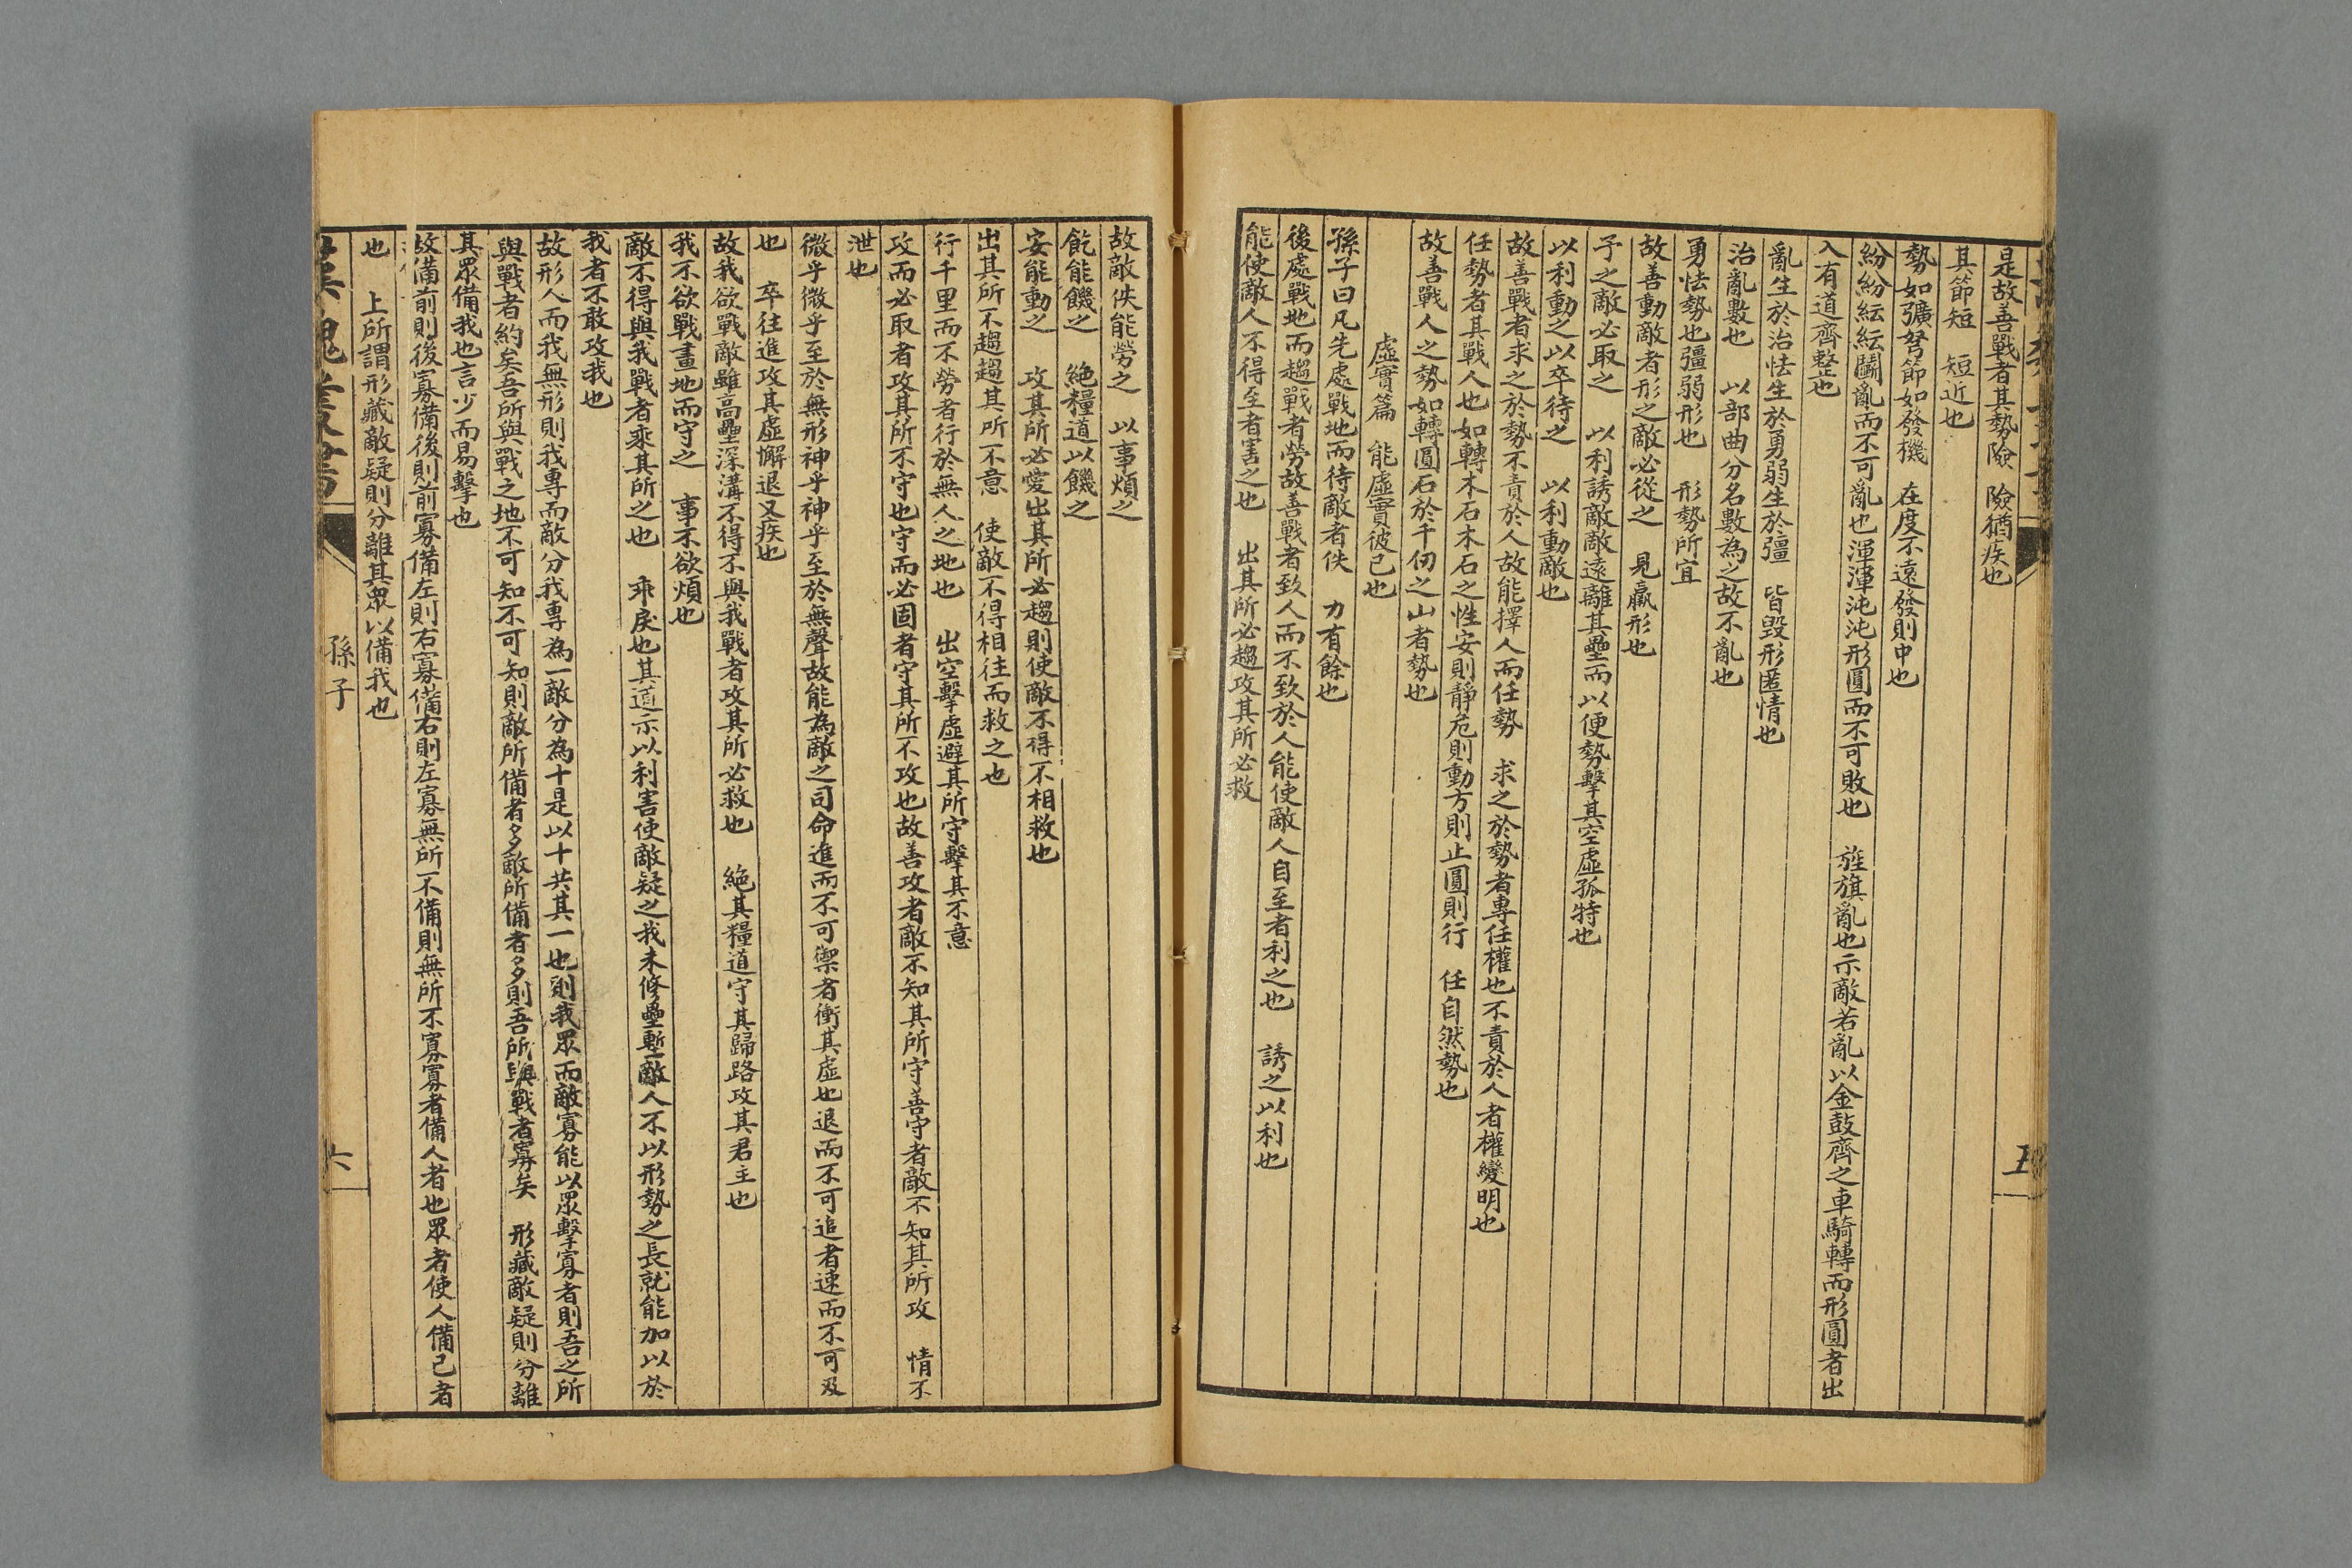 是故善戰者其勢險　險猶疾也
其節短　短近也
勢如彍弩節如發機　在度不遠發則中也
紛紛紜紜鬭亂而不可亂也渾渾沌沌形圓而不可敗也　旌旗亂也示敵若亂以金鼓齊之車騎轉而形圓者出
入有道齊整也
亂生於治怯生於勇弱生於彊　皆毀形匿情也
治亂數也　以部曲分名數為之故不亂也
勇怯勢也彊弱形也　形勢所宜
故善動敵者形之敵必從之　見羸形也
予之敵必取之　以利誘敵敵遠離其壘而以便勢擊其空虛孤特也
以利動之以卒待之　以利動敵也
故善戰者求之於勢不責於人故能擇人而任勢　求之於勢者專任權也不責於人者權變明也
任勢者其戰人也如轉木石木石之性安則靜危則動方則止圓則行　任自然勢也
故善戰人之勢如轉圓石於千仞之山者勢也
虛實篇　能虛實彼己也
孫子曰凡先處戰地而待敵者佚　力有餘也
後處戰地而趨戰者勞故善戰者致人而不致於人能使敵人自至者利之也　誘之以利也
能使敵人不得至者害之也　出其所必趨攻其所必救
五
故敵佚能勞之　以事煩之
飽能饑之　絕糧道以饑之
安能動之　攻其所必愛出其所必趨則使敵不得不相救也
出其所不趨趨其所不意　使敵不得相往而救之也
行千里而不勞者行於無人之地也　出空擊虛避其所守擊其不意
攻而必取者攻其所不守也守而必固者守其所不攻也故善攻者敵不知其所守善守者敵不知其所攻　情不
泄也
微乎微乎至於無形神乎神乎至於無聲故能為敵之司命進而不可禦者衝其虛也退而不可追者速而不可及
也　卒往進攻其虛懈退又疾也
故我欲戰敵雖高壘深溝不得不與我戰者攻其所必救也　絕其糧道守其歸路攻其君主也
我不欲戰畫地而守之　事不欲煩也
敵不得與我戰者乘其所之也　乘戾也其道示以利害使敵疑之我未修壘塹敵人不以形勢之長就能加以於
我者不敢攻我也
故形人而我無形則我專而敵分我專為一敵分為十是以十共其一也則我眾而敵寡能以眾擊寡者則吾之所
與戰者約矣吾所與戰之地不可知不可知則敵所備者多敵所備者多則吾所與戰者寡矣　形藏敵疑則分離
其眾備我也言少而易擊也
故備前則後寡備後則前寡備左則右寡備右則左寡無所不備則無所不寡寡者備人者也眾者使人備己者
也　上所謂形藏敵疑則分離其眾以備我也
孫子
六